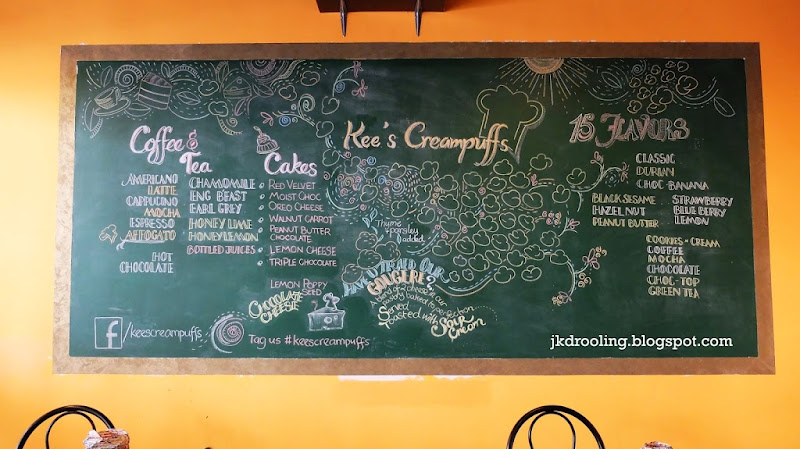 Kee's Creampuffs
Coffee &
Tea
AMERICANO
LATTE
CAPPUCCINO
MOCHA
ESPRESSO
AFFOGATO
HOT
CHOCOLATE
CHAMOMILE
ENG BEAST
EARL GREY
HONEY LIME
HONEY LEMON
BOTTLED JUICES
Cakes
RED VELVET
MOIST CHOC
OREO CHEESE
WALNUT CARROT
PEANUT BUTTER
CHOCOLATE
LEMON CHEESE
TRIPLE CHOCOLATE
LEMON POPPY
SEED
CHOCOLATE
CHEESIE
Thyme
parsley
added
HAVE U TRIED OUR
GOUGERE?
savoury baked to perfection
Toasted with
SOUR
15 FLAVORS
CLASSIC
DURIAN
CHOC-BANANA
BLACK SESAME
HAZELNUT
PEANUT BUTTER
STRAWBERRY
BLUEBERRY
LEMON
COOKIES-CREAM
COFFEE
MOCHA
CHOCOLATE
CHOC-TOP
GREEN TEA
f/keescreampuffs
Tag us #keescreampuffs
jkdrooling.blogspot.com